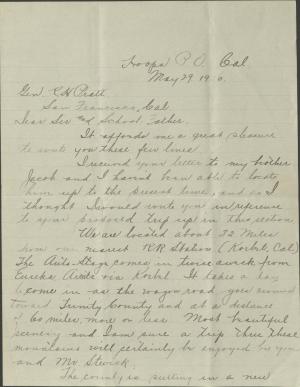 Hoopa P.O. Cal
May 29 19
Gen. R H Pratt
San Francisco, Cal.
Dear Sir and School Father.
It affords me a great pleasure
to write you these few lines.
I received your letter to my brother
Jacob and I haven't been able to locate
him up to the present time, and so I
thought I would write you in reference
to your proposed trip up in this section
We are located about 32 Miles
from our nearest R.R. Station (Korbel, Cal)
The Auto Stage comes in twice a week from
Eureka, via Korbel. It takes a day
to come in as the wagon road goes around
toward Trinity County and at a distance
of 60 miles, more or less. Most beautiful
scenery and I am sure a trip thru these
mountains will certainly be enjoyed by you
and Mr.
The county is putting in a new